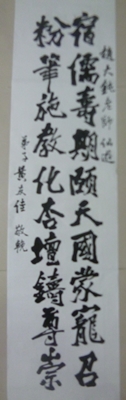 大銚老師仙遊
宿儒壽期頤天國蒙寵召
粉筆施教化杏壇鑄尊崇
弟子黃友佳敬輓